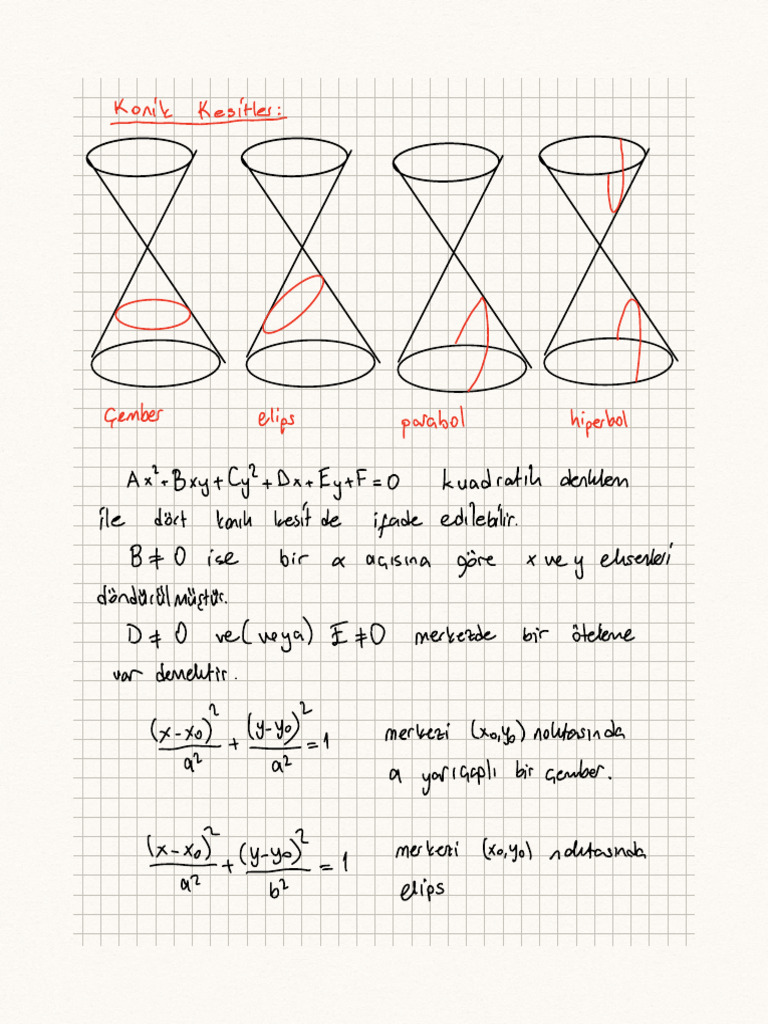 Konik Kesitler:
Çember elips parabol hiperbol
Ax²+Bxy+Cy²+Dx+Ey+F=0 kuadratik denklem
ile dört konik kesit de ifade edilebilir.
B≠0 ise bir α açısına göre x ve y eksenleri
döndürülmüştür.
D≠0 ve(veya) E≠0 merkezde bir öteleme
var demektir.
(x-x₀)²/a² + (y-y₀)²/a² = 1 merkezi (x₀,y₀) noktasında
a yarıçaplı bir çember.
(x-x₀)²/a² + (y-y₀)²/b² = 1 merkezi (x₀,y₀) noktasında
elips